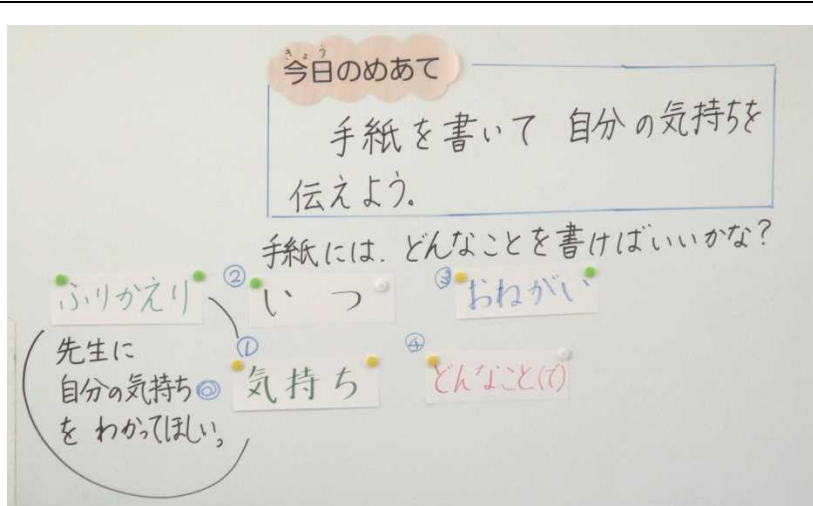 きょう
今日のめあて
手紙を書いて 自分の気持ちを
伝えよう。
手紙には、どんなことを書けばいいかな?
ふりかえり
②
いつ
③
おねがい
先生に
自分の気持ち◎
を わかってほしい。
①
気持ち
④
どんなこと(で)